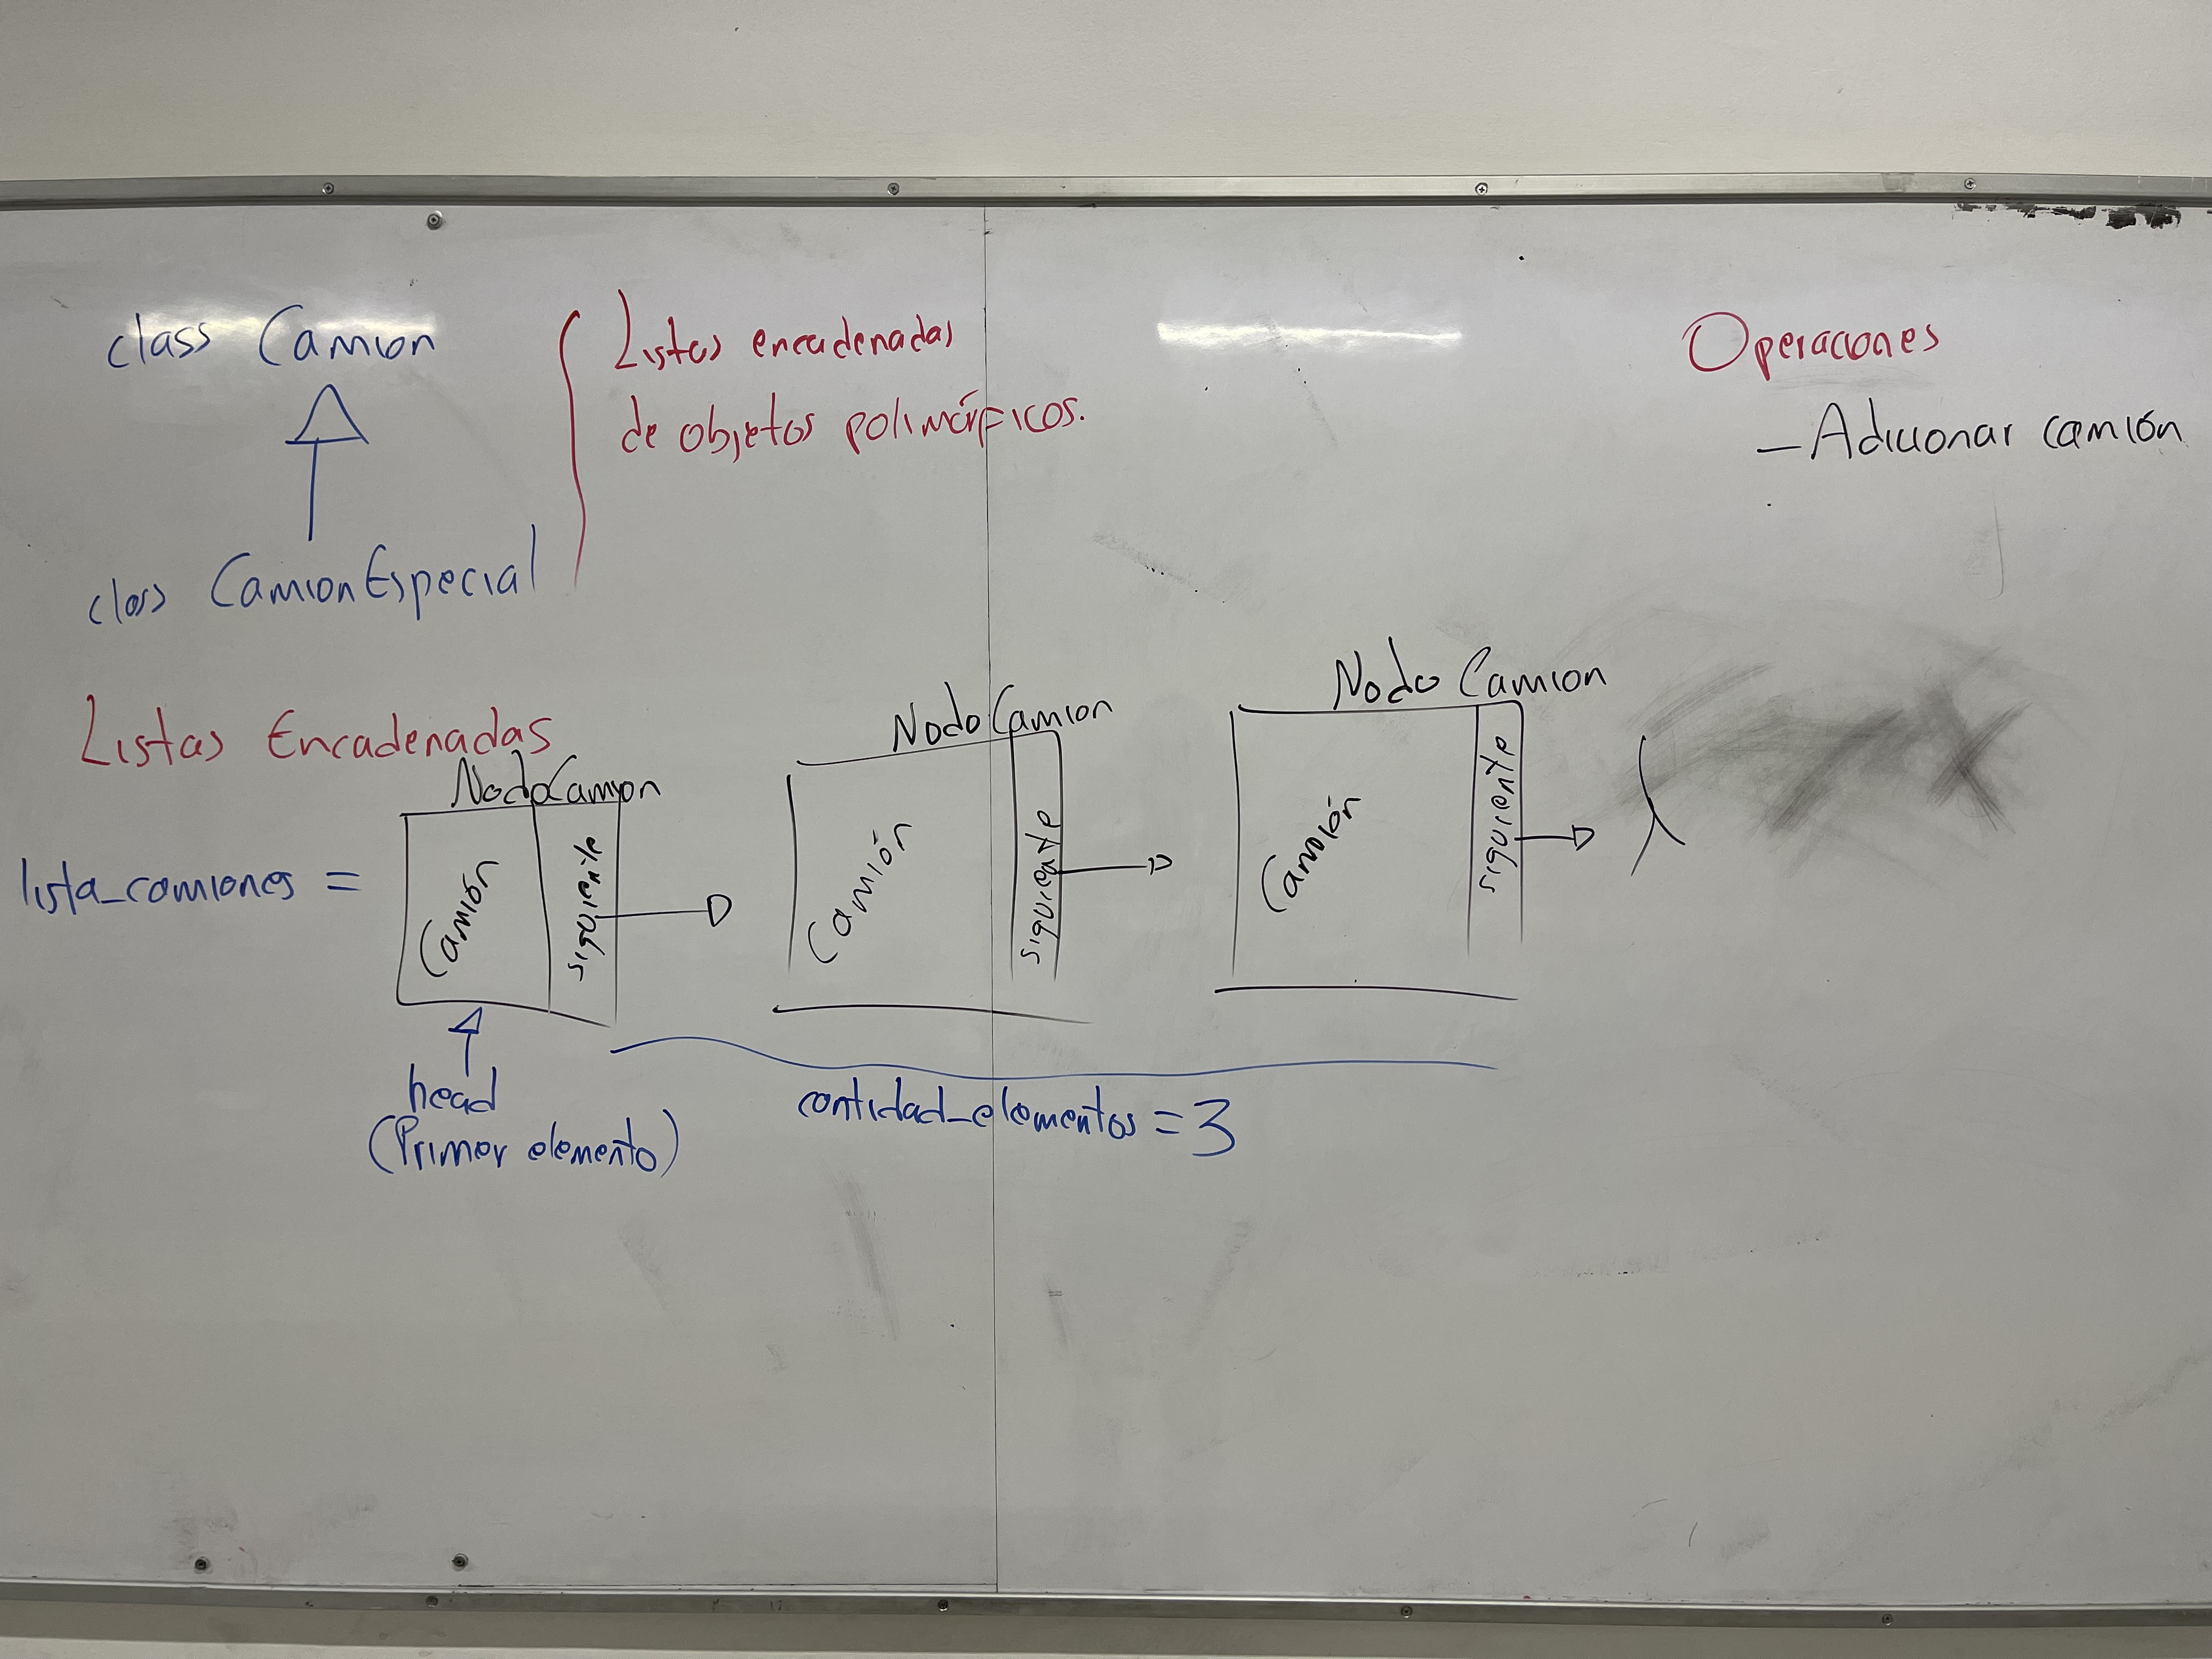 class Camion
class CamionEspecial
Listas encadenadas
de objetos polimórficos.
Operaciones
- Adicionar camión
Listas Encadenadas
lista_camiones =
NodoCamion
Camión
siguiente
NodoCamion
Camión
siguiente
Nodo Camion
Camión
siguiente
λ
head
(Primer elemento)
cantidad_elementos = 3